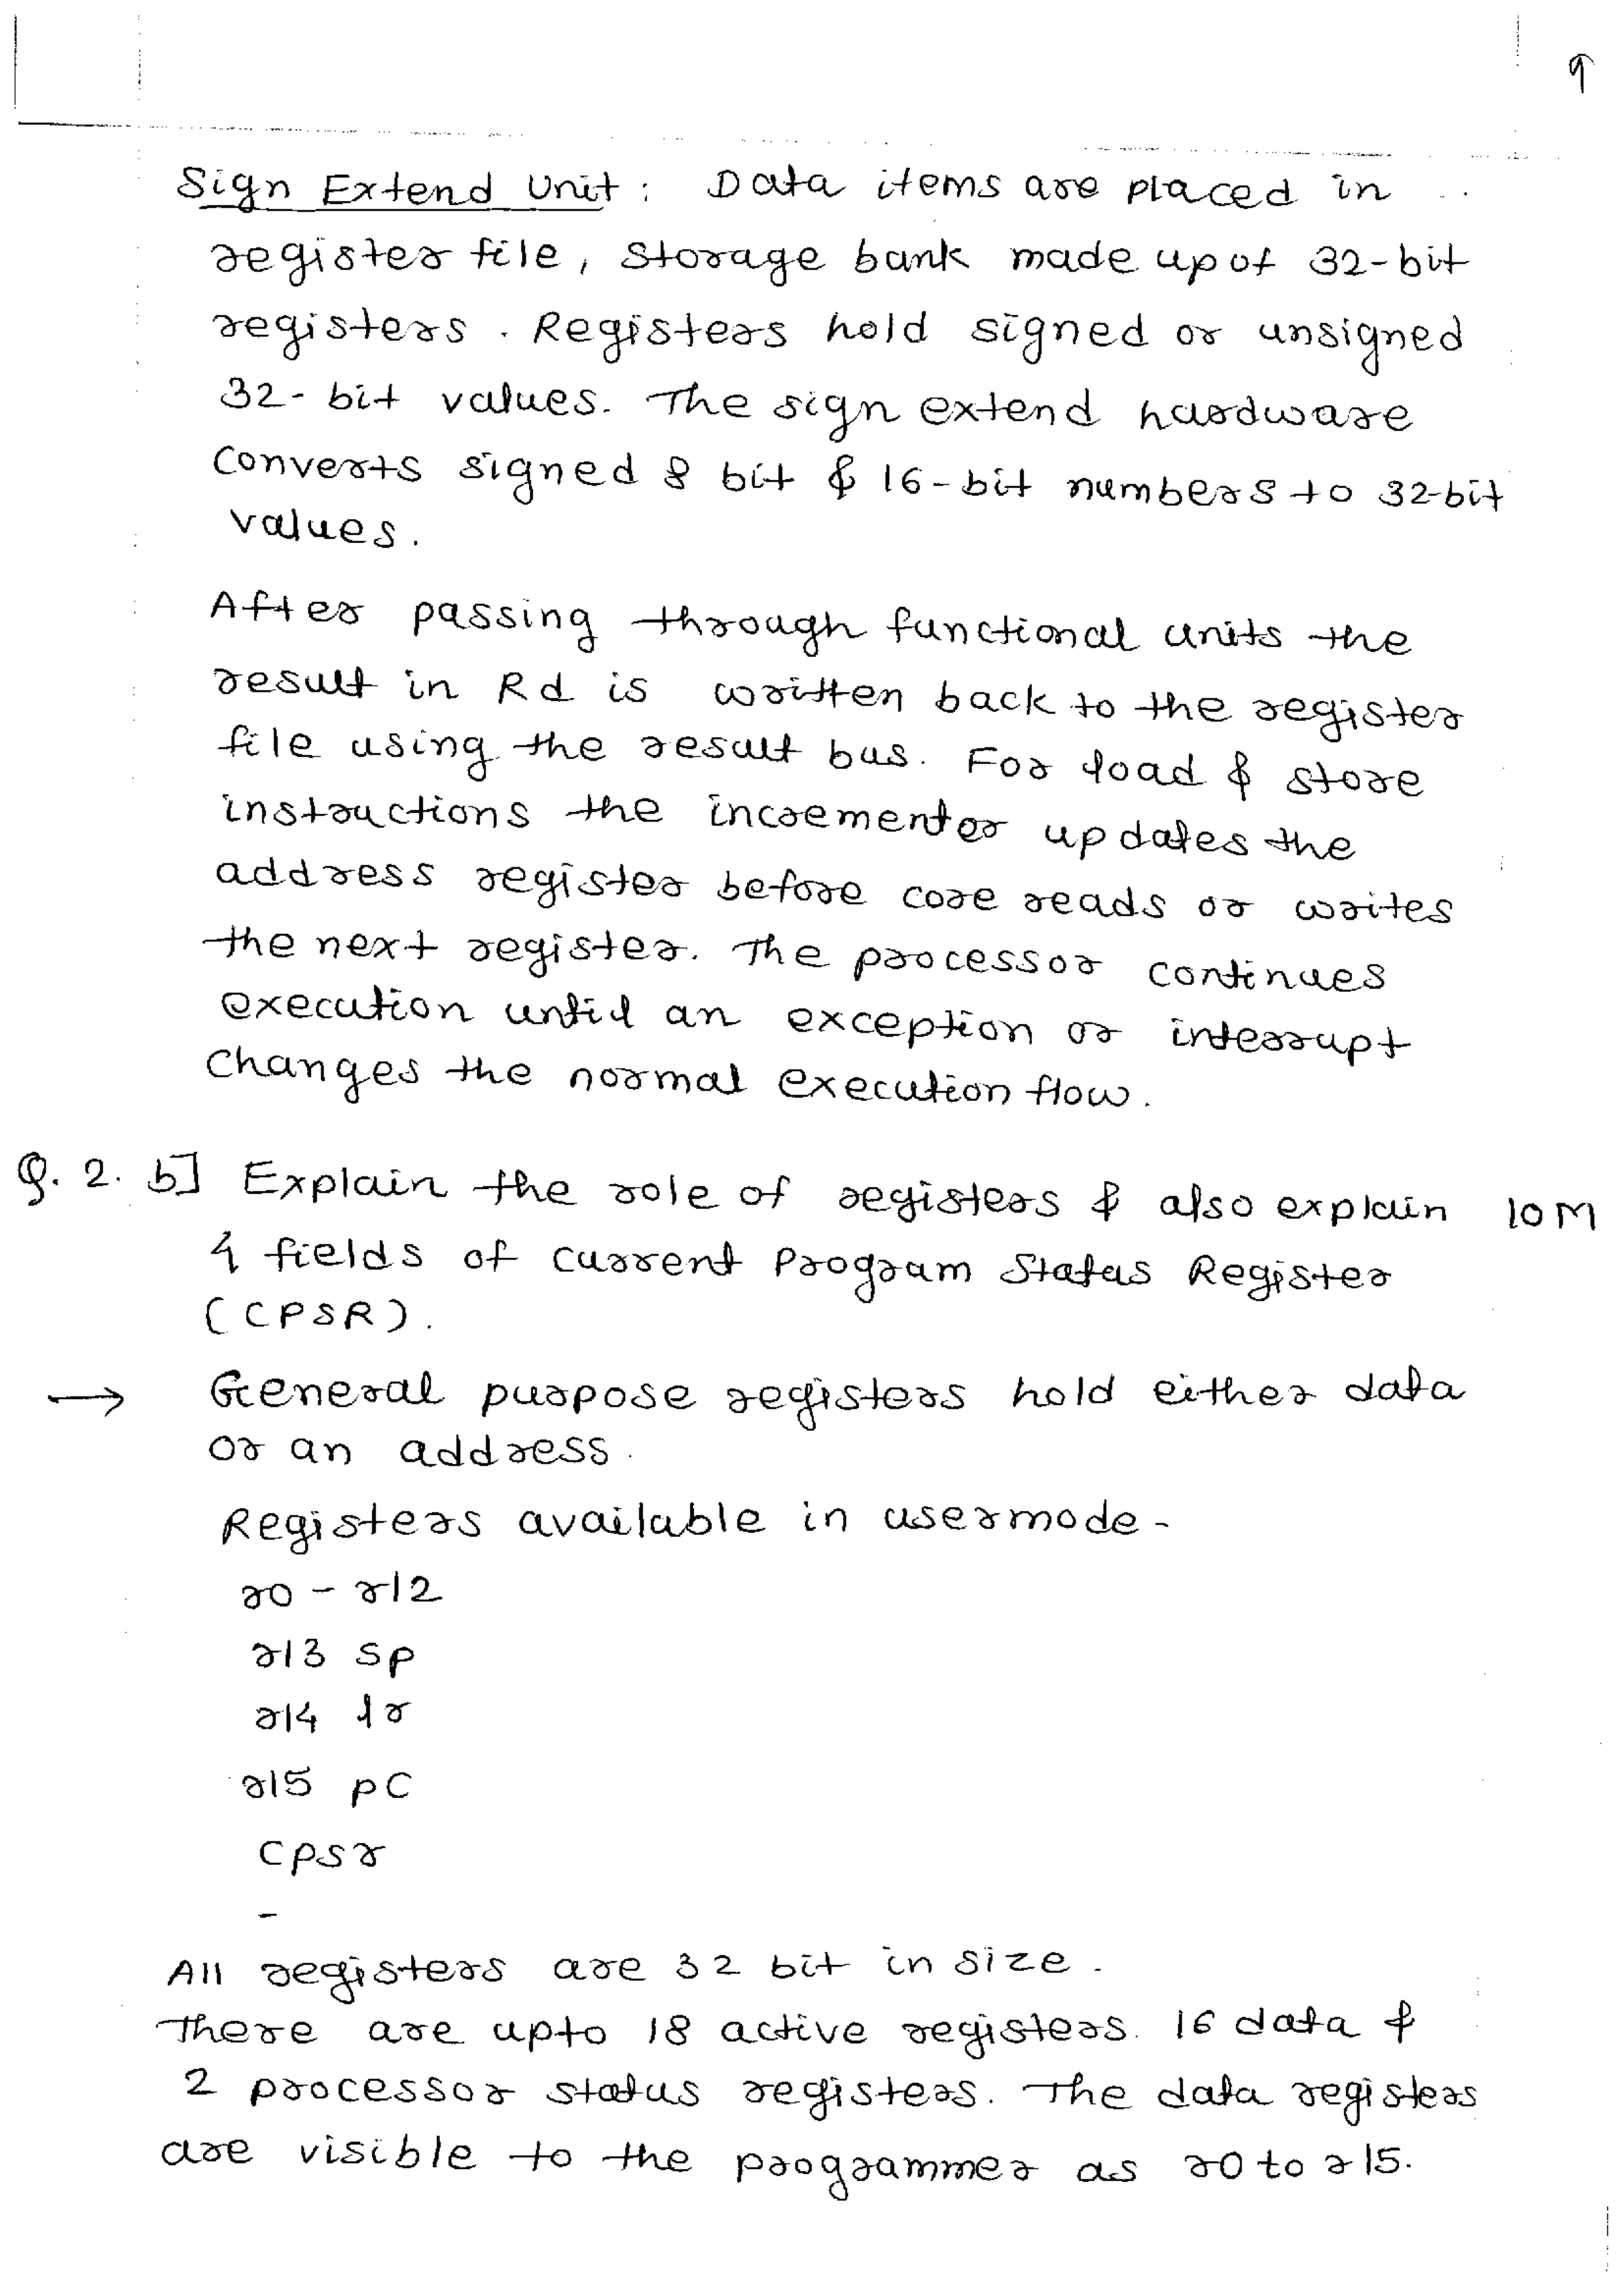 9
Sign Extend Unit : Data items are placed in
register file, Storage bank made upof 32-bit
registers. Registers hold signed or unsigned
32-bit values. The sign extend hardware
Converts signed 8 bit & 16-bit numbers to 32-bit
values.
After passing through functional units the
result in Rd is written back to the register
file using the result bus. For load & store
instructions the incrementer updates the
address register before core reads or writes
the next register. The processor continues
execution until an exception or interrupt
Changes the normal execution flow.
Q. 2. b] Explain the role of registers & also explain 10M
4 fields of Current Program Status Register
(CPSR).
→ General purpose registers hold either data
or an address.
Registers available in usermode -
r0 - r12
r13 sp
r14 lr
r15 pc
Cpsr
-
All registers are 32 bit in size.
There are upto 18 active registers. 16 data &
2 processor status registers. The data registers
are visible to the programmer as r0 to r15.